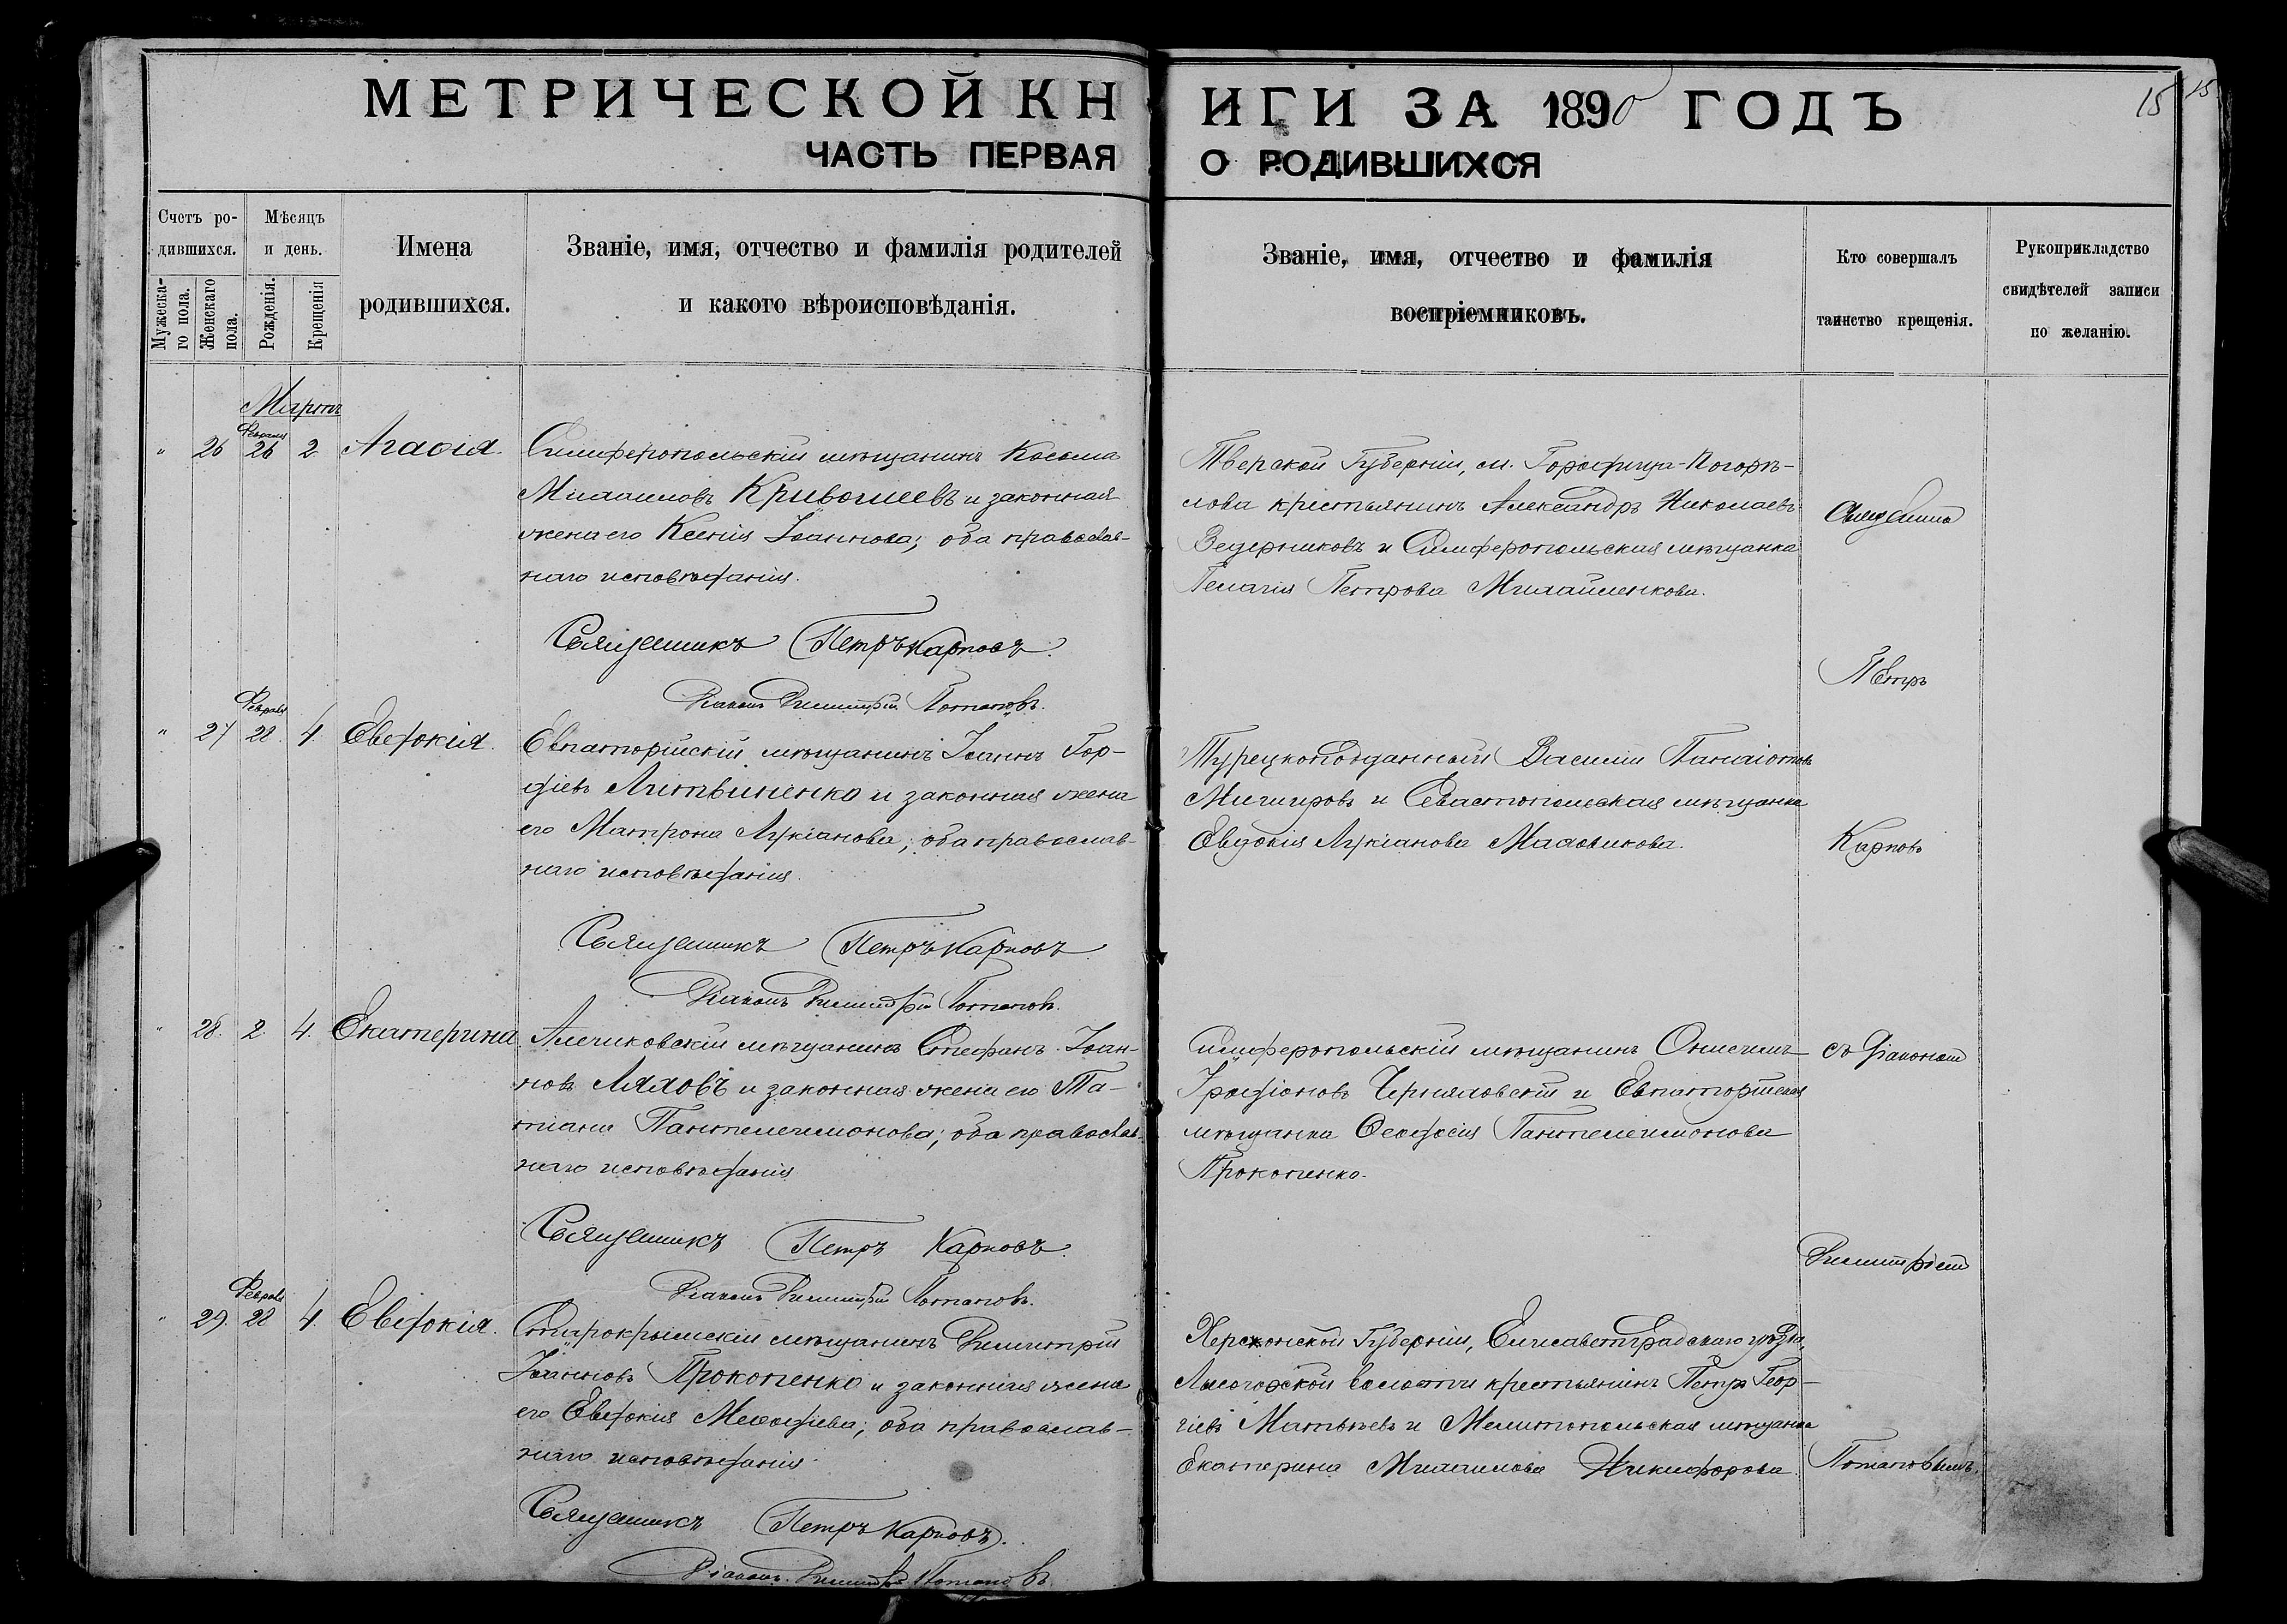 МЕТРИЧЕСКОЙ КНИГИ ЗА 1890 ГОДЪ
15 15
ЧАСТЬ ПЕРВАЯ О РОДИВШИХСЯ
Счетъ родившихся.
Мужескаго пола.
Женскаго пола.
Мѣсяцъ и день.
Рожденія.
Крещенія
Имена
родившихся.
Званіе, имя, отчество и фамилія родителей
и какого вѣроисповѣданія.
Званіе, имя, отчество и фамилія
воспріемниковъ.
Кто совершалъ
таинство крещенія.
Рукоприкладство
свидѣтелей записи
по желанію.
Мартъ
Февраля
" 26 26 2 Агафія.
Симферопольскій мѣщанинъ Косьма
Михаиловъ Кривошеевъ и законная
жена его Ксенія Іоаннова; оба православ-
наго исповѣданія.
Священникъ Петръ Карповъ.
Діаконъ Димитрій Потаповъ.
Тверской Губерніи, м. Городища-Погорѣ-
лова крестьянинъ Александръ Николаевъ
Ведерниковъ и Симферопольская мѣщанка
Пелагія Петрова Михайленкова.
Февраля
" 27 28 4. Евдокія.
Евпаторійскій мѣщанинъ Іоаннъ Гор-
діевъ Литвиненко и законная жена
его Матрона Лукіанова; оба православ-
наго исповѣданія.
Священникъ Петръ Карповъ
Діаконъ Димитрій Потаповъ.
Турецкоподданный Василій Панаіотовъ
и Севастопольская мѣщанка
Евдокія Лукіанова
" 28. 2 4. Екатерина.
Алешковскій мѣщанинъ Стефанъ Іоан-
новъ Ляховъ и законная жена его Та-
тіана Пантелеимонова; оба православ-
наго исповѣданія
Священникъ Петръ Карповъ.
Діаконъ Димитрій Потаповъ.
Симферопольскій мѣщанинъ Онисимъ
Иродіоновъ Черняховскій и Евпаторійская
мѣщанка Ѳеодосія Пантелеимонова
Прокопенко.
Февраля
" 29. 28 4. Евдокія.
Старокрымскій мѣщанинъ Димитрій
Іоанновъ Прокопенко и законная жена
его Евдокія Меѳодіева; оба православ-
наго исповѣданія.
Священникъ Петръ Карповъ.
Діаконъ Димитрій Потаповъ.
Херсонской Губерніи, Елисаветградскаго уѣзда,
Лысогорской волости крестьянинъ Петръ Геор-
гіевъ Матвѣевъ и Мелитопольская мѣщанка
Екатерина Михаилова Никифорова.
Священникъ
Петръ
Карповъ
съ діакономъ
Димитріемъ
Потаповымъ.